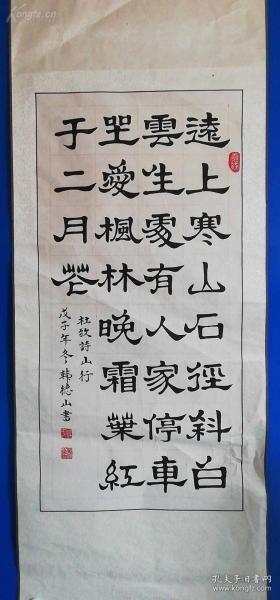 遠上寒山石徑斜白
雲生處有人家停車
坐愛楓林晚霜葉紅
于二月花
杜牧詩山行
戊子年冬韓德山書
Kongfz.cn
孔夫子旧书网